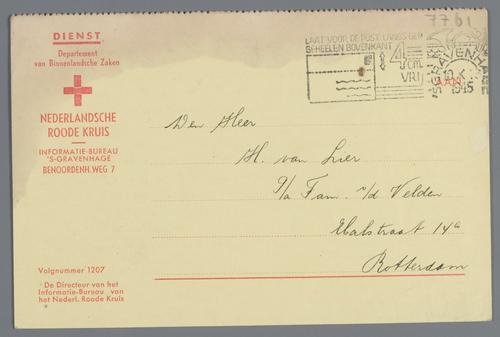 7761
DIENST
Departement
van Binnenlandsche Zaken
NEDERLANDSCHE
ROODE KRUIS
INFORMATIE-BUREAU
'S-GRAVENHAGE
BENOORDENH. WEG 7
LAAT VOOR DE POST LANGS DEN
GEHEELEN BOVENKANT
4
cM.
VRIJ
'S-GRAVENHAGE
1945
Den Heer
H. van Lier
p/a Fam. v/d Velden
straat 14a
Rotterdam
Volgnummer 1207
De Directeur van het
Informatie-Bureau van
het Nederl. Roode Kruis